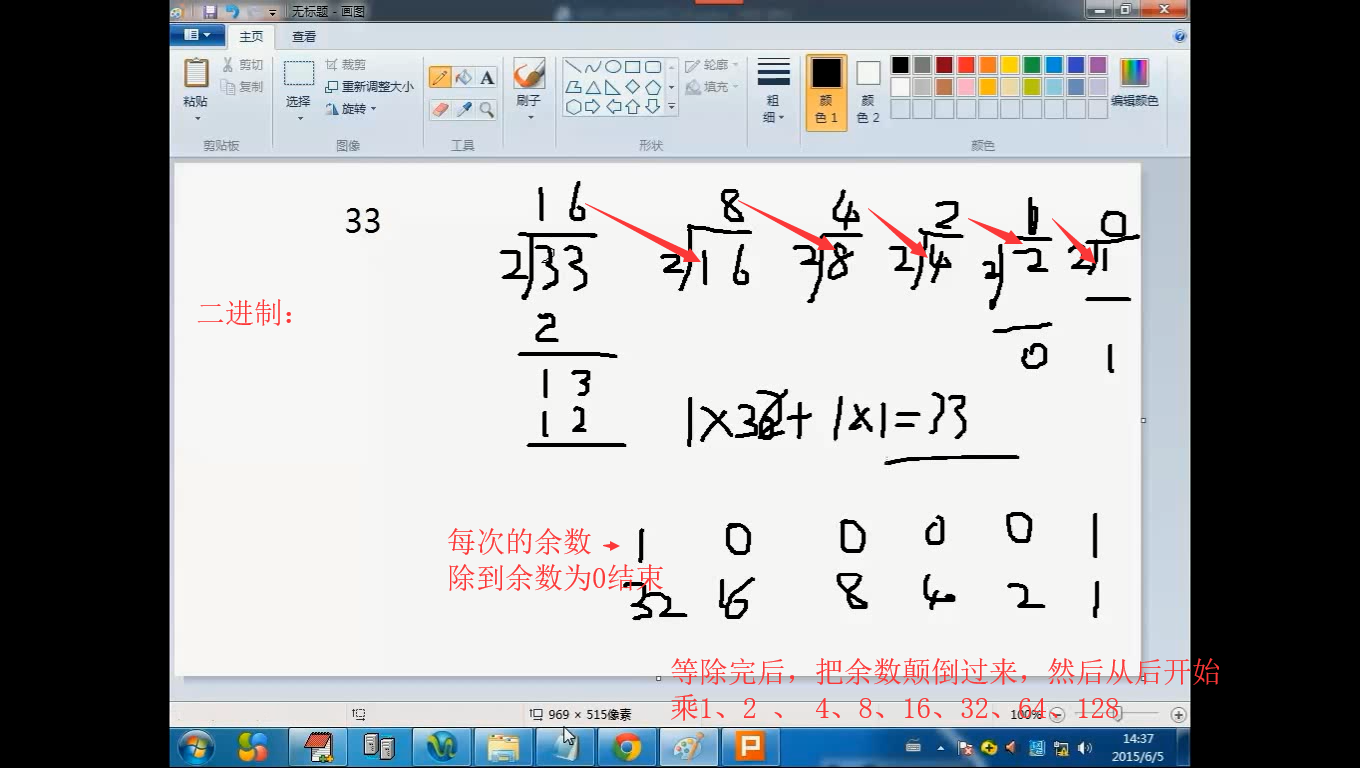 无标题 - 画图
主页 查看
粘贴 剪切 复制 剪贴板
选择 裁剪 重新调整大小 旋转 图像
A 工具
刷子
轮廓 填充 形状
粗细
颜色 1 颜色 2 编辑颜色 颜色
33
16 8 4 2 1 0
2 33 2 16 2 8 2 4 2 2 2 1
二进制:
2
13 0 1
12
1×32+1×1=33
每次的余数 1 0 0 0 0 1
除到余数为0结束
32 16 8 4 2 1
等除完后，把余数颠倒过来，然后从后开始
乘1、2 、 4、8、16、32、64、128
969 × 515像素 100%
14:37
2015/6/5